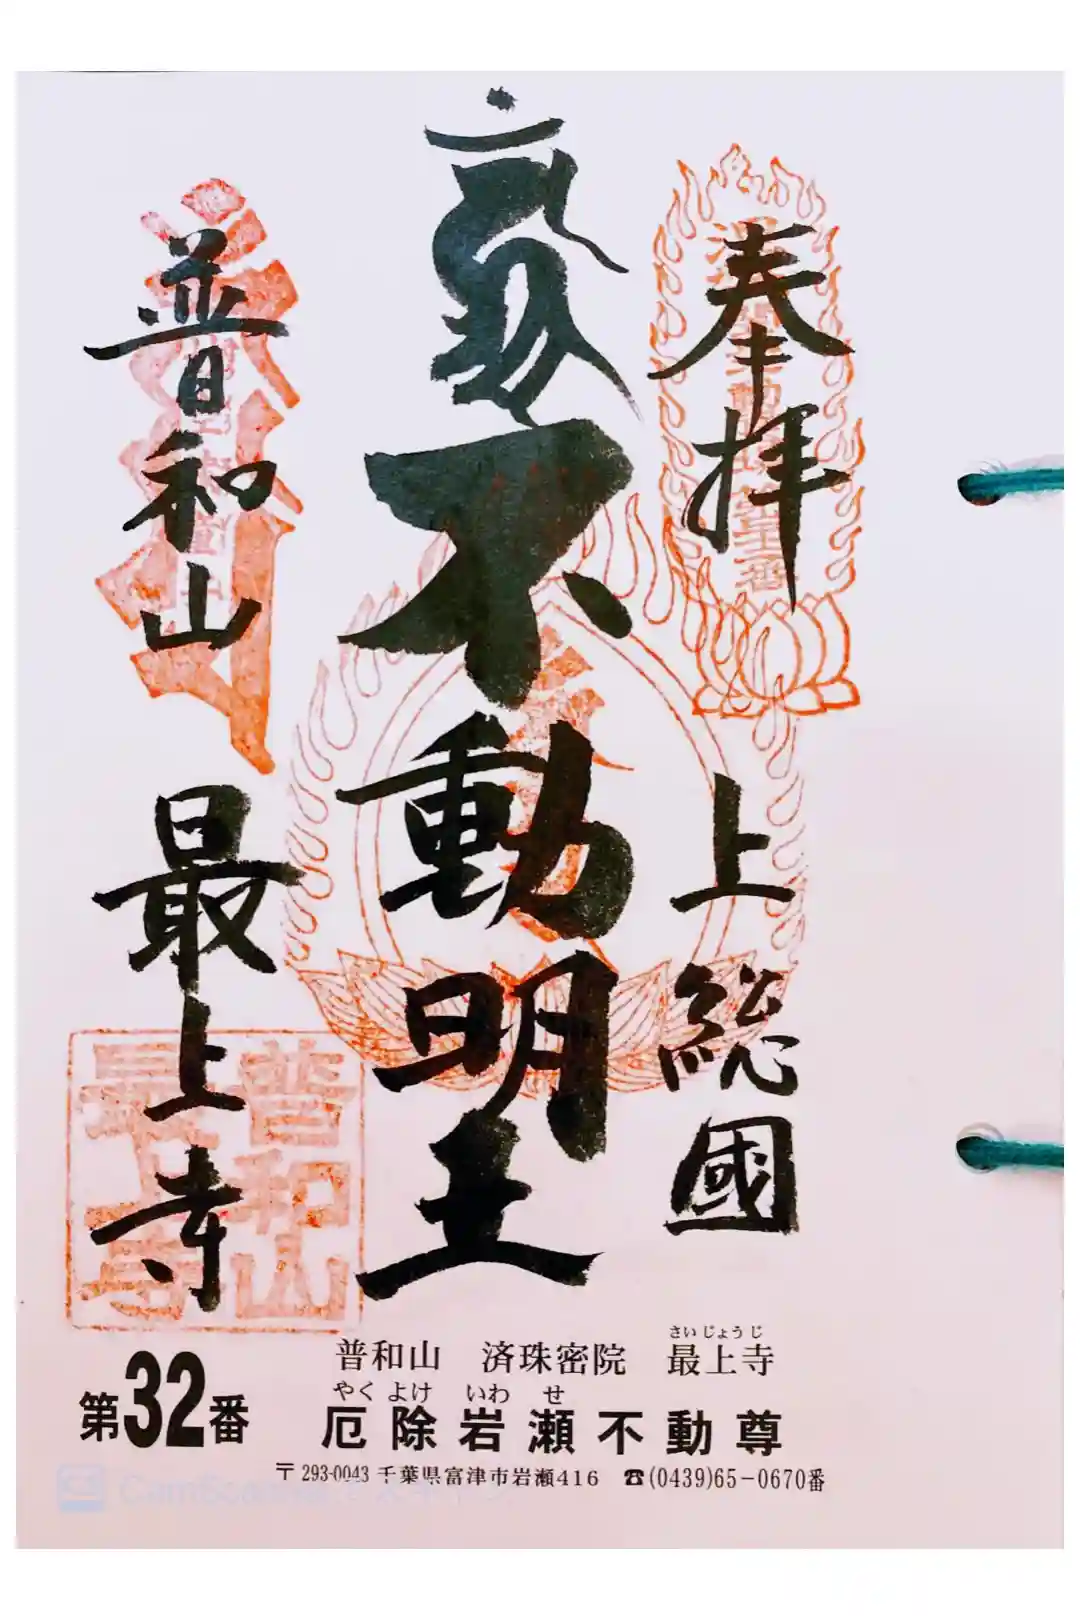 奉拝
上総國
不動明王
普和山
最上寺
普和山
最上寺
普和山 済珠密院 最上寺
さいじょうじ
第32番
厄除岩瀬不動尊
やくよけ いわせ
〒293-0043 千葉県富津市岩瀬416 ☎(0439)65-0670番